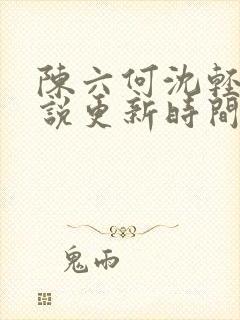 陳六何沈輕
說更新時間
鬼雨